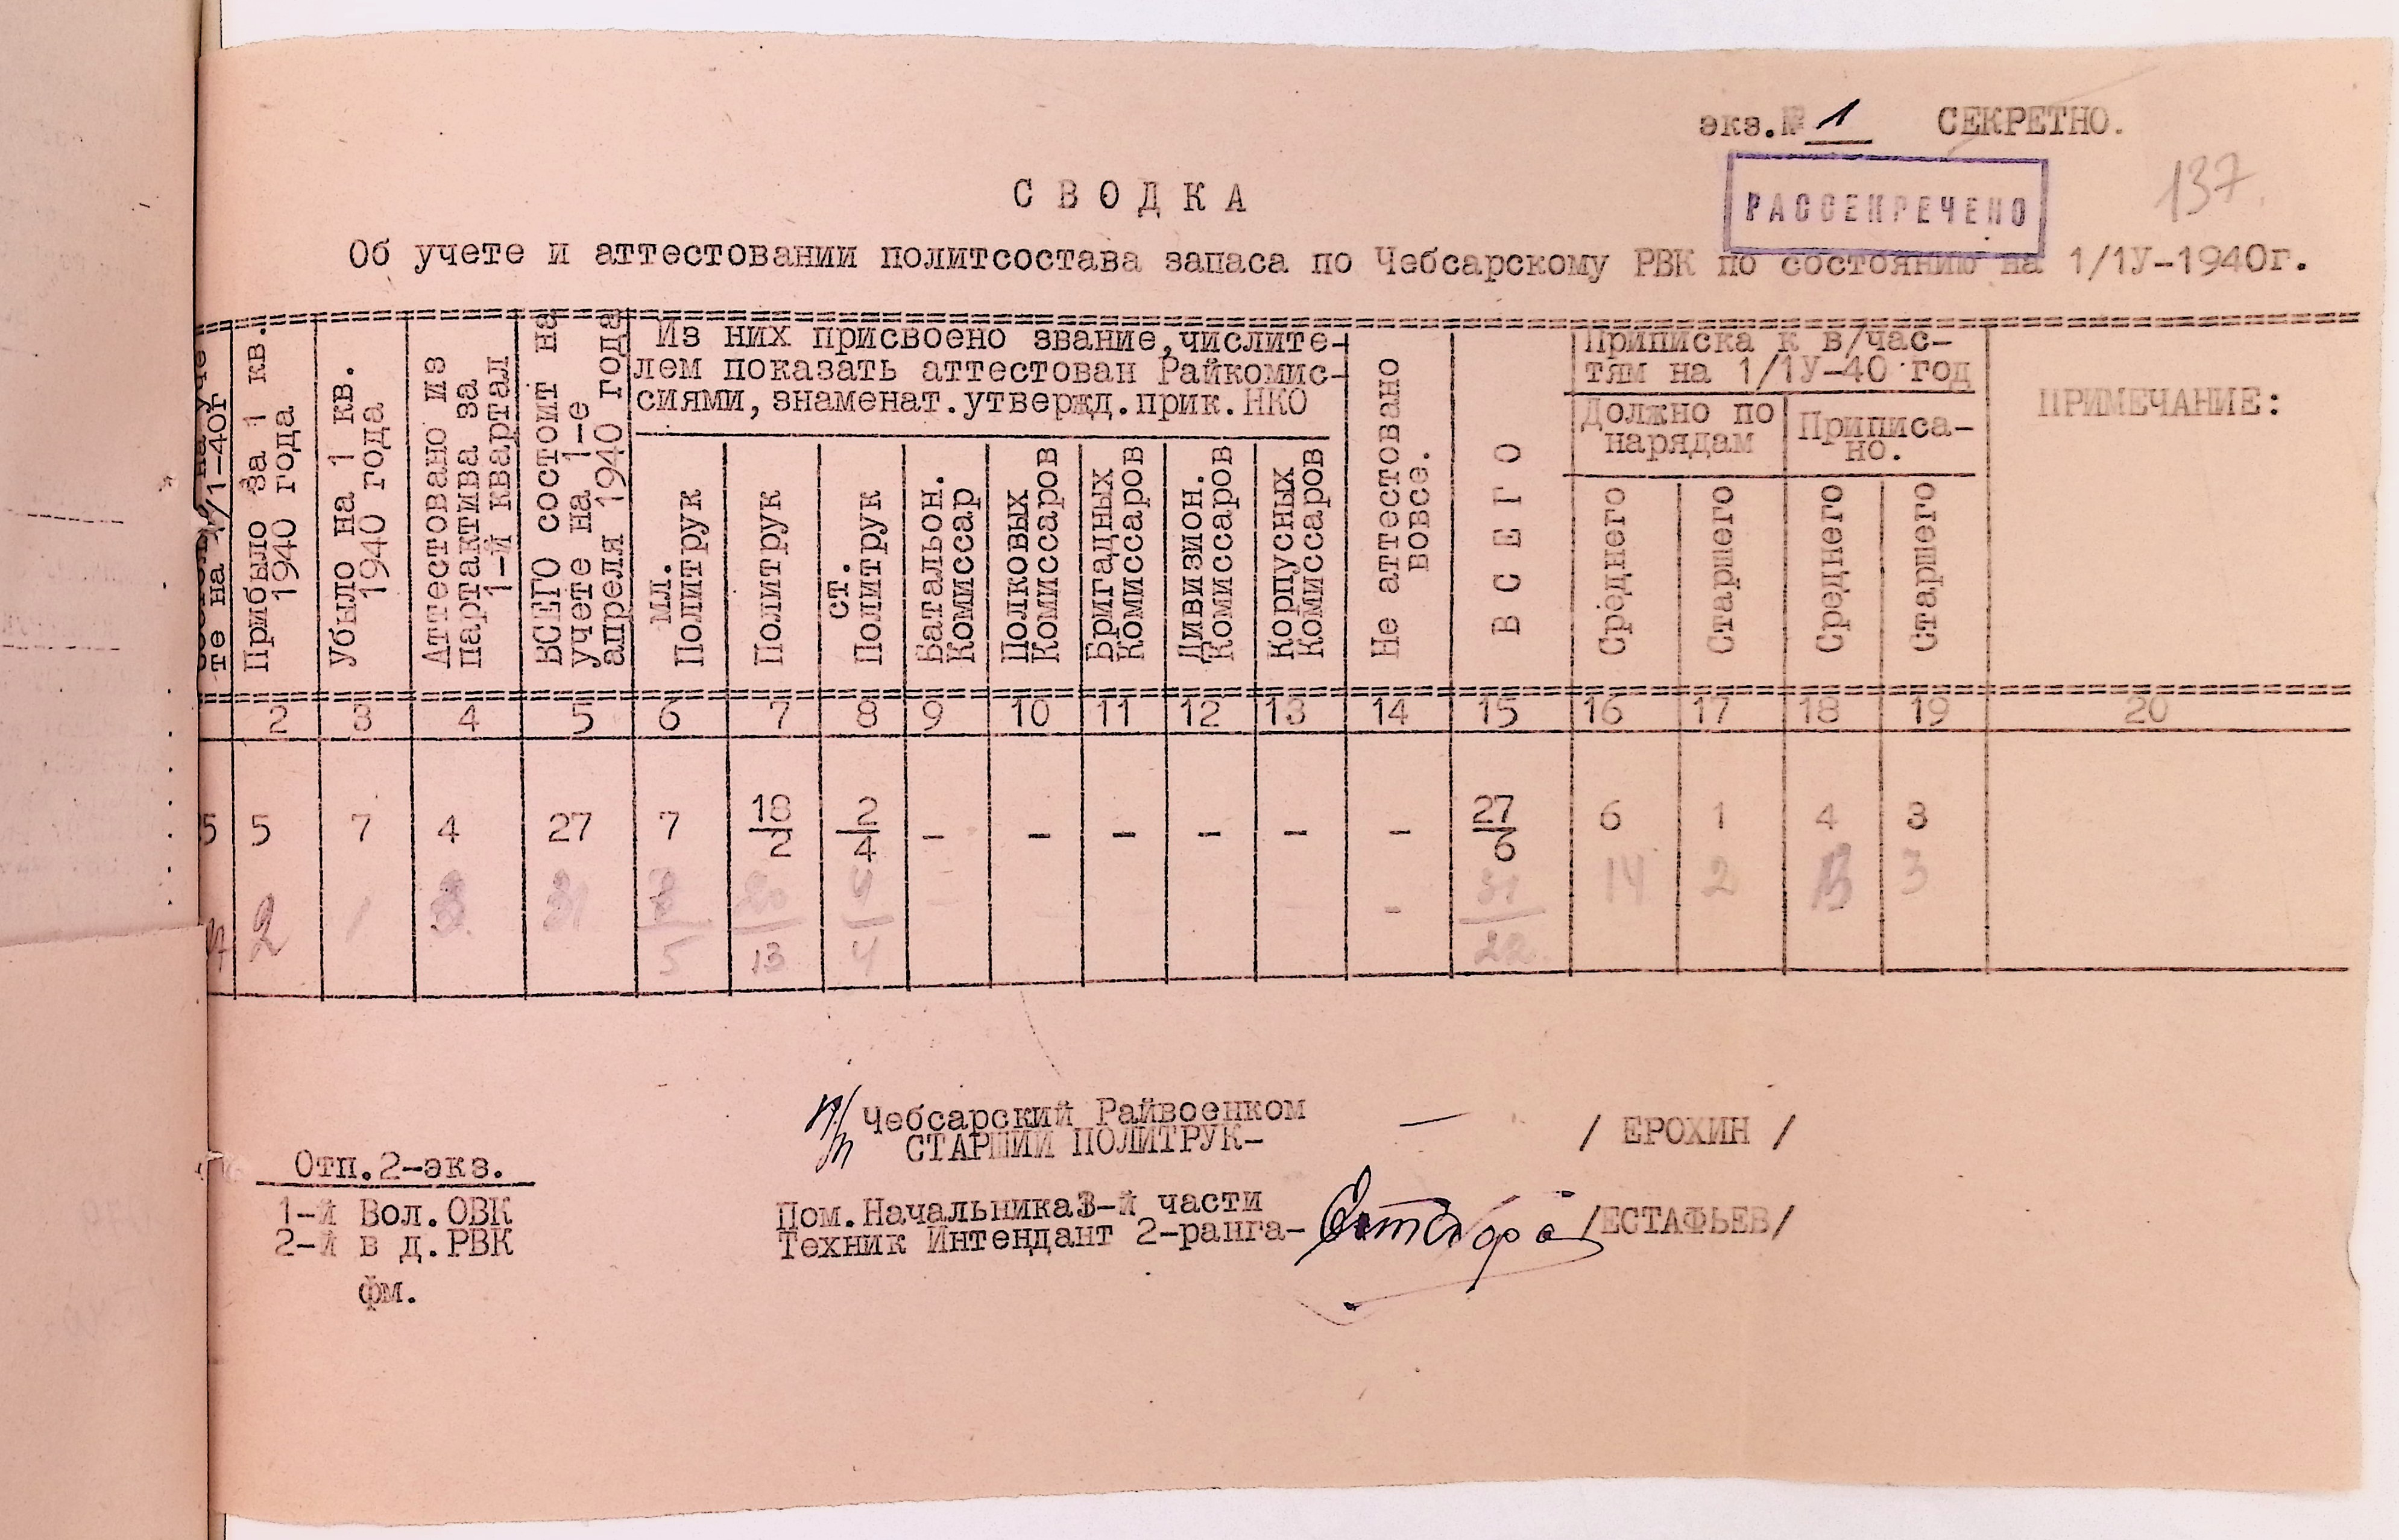 экз.№ 1 СЕКРЕТНО.
РАССЕКРЕЧЕНО
137.
СВОДКА
Об учете и аттестовании политсостава запаса по Чебсарскому РВК по состоянию на 1/1У-1940г.
те на 1/1-40г
Прибыло за 1 кв.
1940 года
Убыло на 1 кв.
1940 года
Аттестовано из
партактива за
1-й квартал
ВСЕГО состоит на
учете на 1-е
апреля 1940 года
Из них присвоено звание,числите-
лем показать аттестован Райкомис-
сиями,знаменат.утвержд.прик.НКО
мл.
Политрук
Политрук
ст.
Политрук
Батальон.
Комиссар
Полковых
Комиссаров
Бригадных
Комиссаров
Дивизион.
Комиссаров
Корпусных
Комиссаров
Не аттестовано
вовсе.
ВСЕГО
Приписка к в/час-
тям на 1/1У-40 год
Должно по
нарядам
Приписа-
но.
Среднего
Старшего
Среднего
Старшего
ПРИМЕЧАНИЕ:
2 3 4 5 6 7 8 9 10 11 12 13 14 15 16 17 18 19 20
5 5 7 4 27 7 18/2 2/4 - - - - - - 27/6 6 1 4 3
2 1 3 31 5 20/13 4/4 - - 31/22. 14 2 13 3
п/п Чебсарский Райвоенком
СТАРШИЙ ПОЛИТРУК- — / ЕРОХИН /
Отп.2-экз.
1-й Вол.ОВК
2-й в д.РВК
фм.
Пом.Начальника3-й части
Техник Интендант 2-ранга- /ЕСТАФЬЕВ/